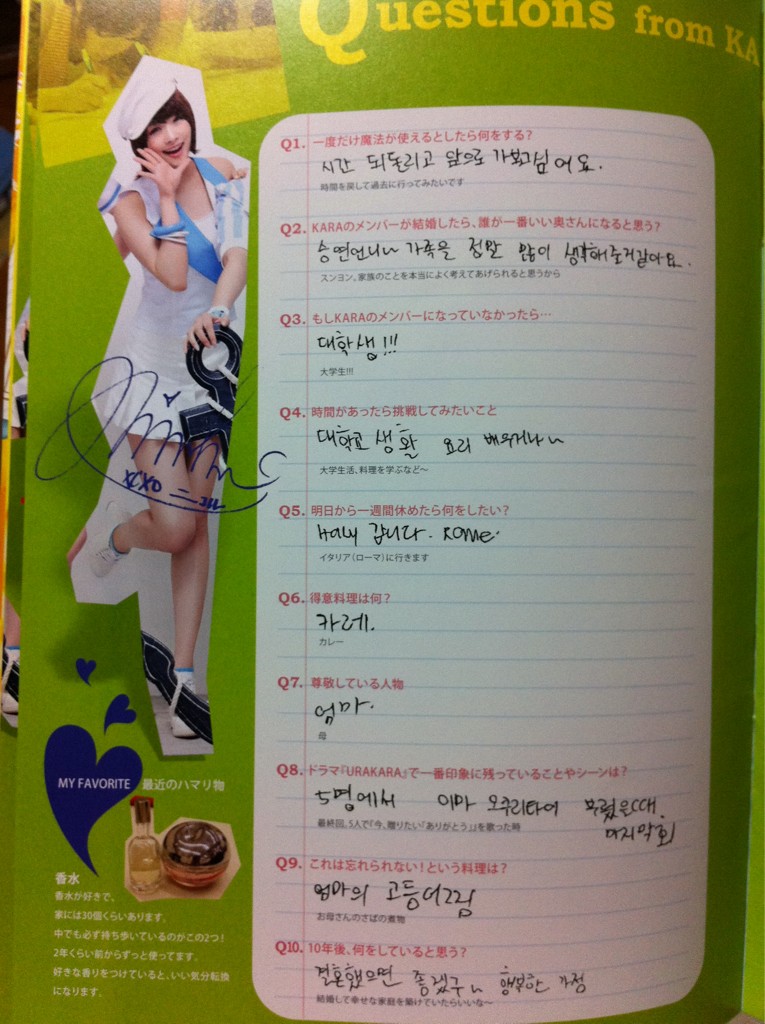 Questions from KA
Q1. 一度だけ魔法が使えるとしたら何をする?
시간 되돌리고 앞으로 가보고님어요.
時間を戻して過去に行ってみたいです
Q2. KARAのメンバーが結婚したら、誰が一番いい奥さんになると思う?
승연언니~ 가족을 정말 많이 생각해줄거같아요.
スンヨン、家族のことを本当によく考えてあげられると思うから
Q3. もしKARAのメンバーになっていなかったら…
대학생!!!
大学生!!!
Q4. 時間があったら挑戦してみたいこと
대학교 생활 요리 배우거나~
大学生活、料理を学ぶなど〜
Q5. 明日から一週間休めたら何をしたい?
Italy 갑니다. Rome.
イタリア(ローマ)に行きます
Q6. 得意料理は何?
카레.
カレー
Q7. 尊敬している人物
엄마.
母
Q8. ドラマ『URAKARA』で一番印象に残っていることやシーンは?
5명에서 이마 오쿠리타이 불렀을때.
마지막회
最終回。5人で『今、贈りたい「ありがとう」』を歌った時
Q9. これは忘れられない!という料理は?
엄마의 고등어조림
お母さんのさばの煮物
Q10. 10年後、何をしていると思う?
결혼했으면 좋겠구~ 행복한 가정
結婚して幸せな家庭を築けていたらいいな〜
XOXO
MY FAVORITE 最近のハマリ物
香水
香水が好きで、
家には30個くらいあります。
中でも必ず持ち歩いているのがこの2つ!
2年くらい前からずっと使ってます。
好きな香りをつけていると、いい気分転換
になります。